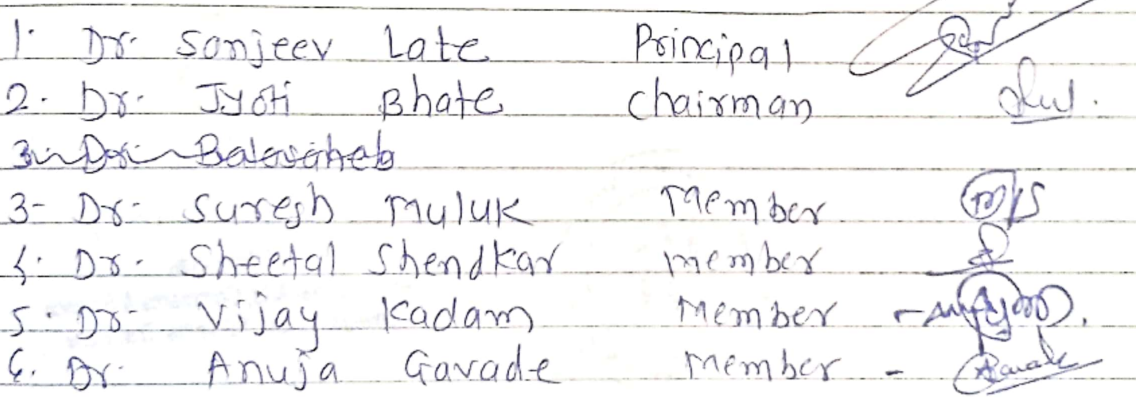 1. Dr. Sanjeev Late Principal
2. Dr. Jyoti Bhate Chairman
3. Dr. Balasaheb
3- Dr. Suresh Muluk Member
4. Dr. Sheetal Shendkar member
5. Dr. Vijay Kadam Member -
6. Dr. Anuja Gavade Member -